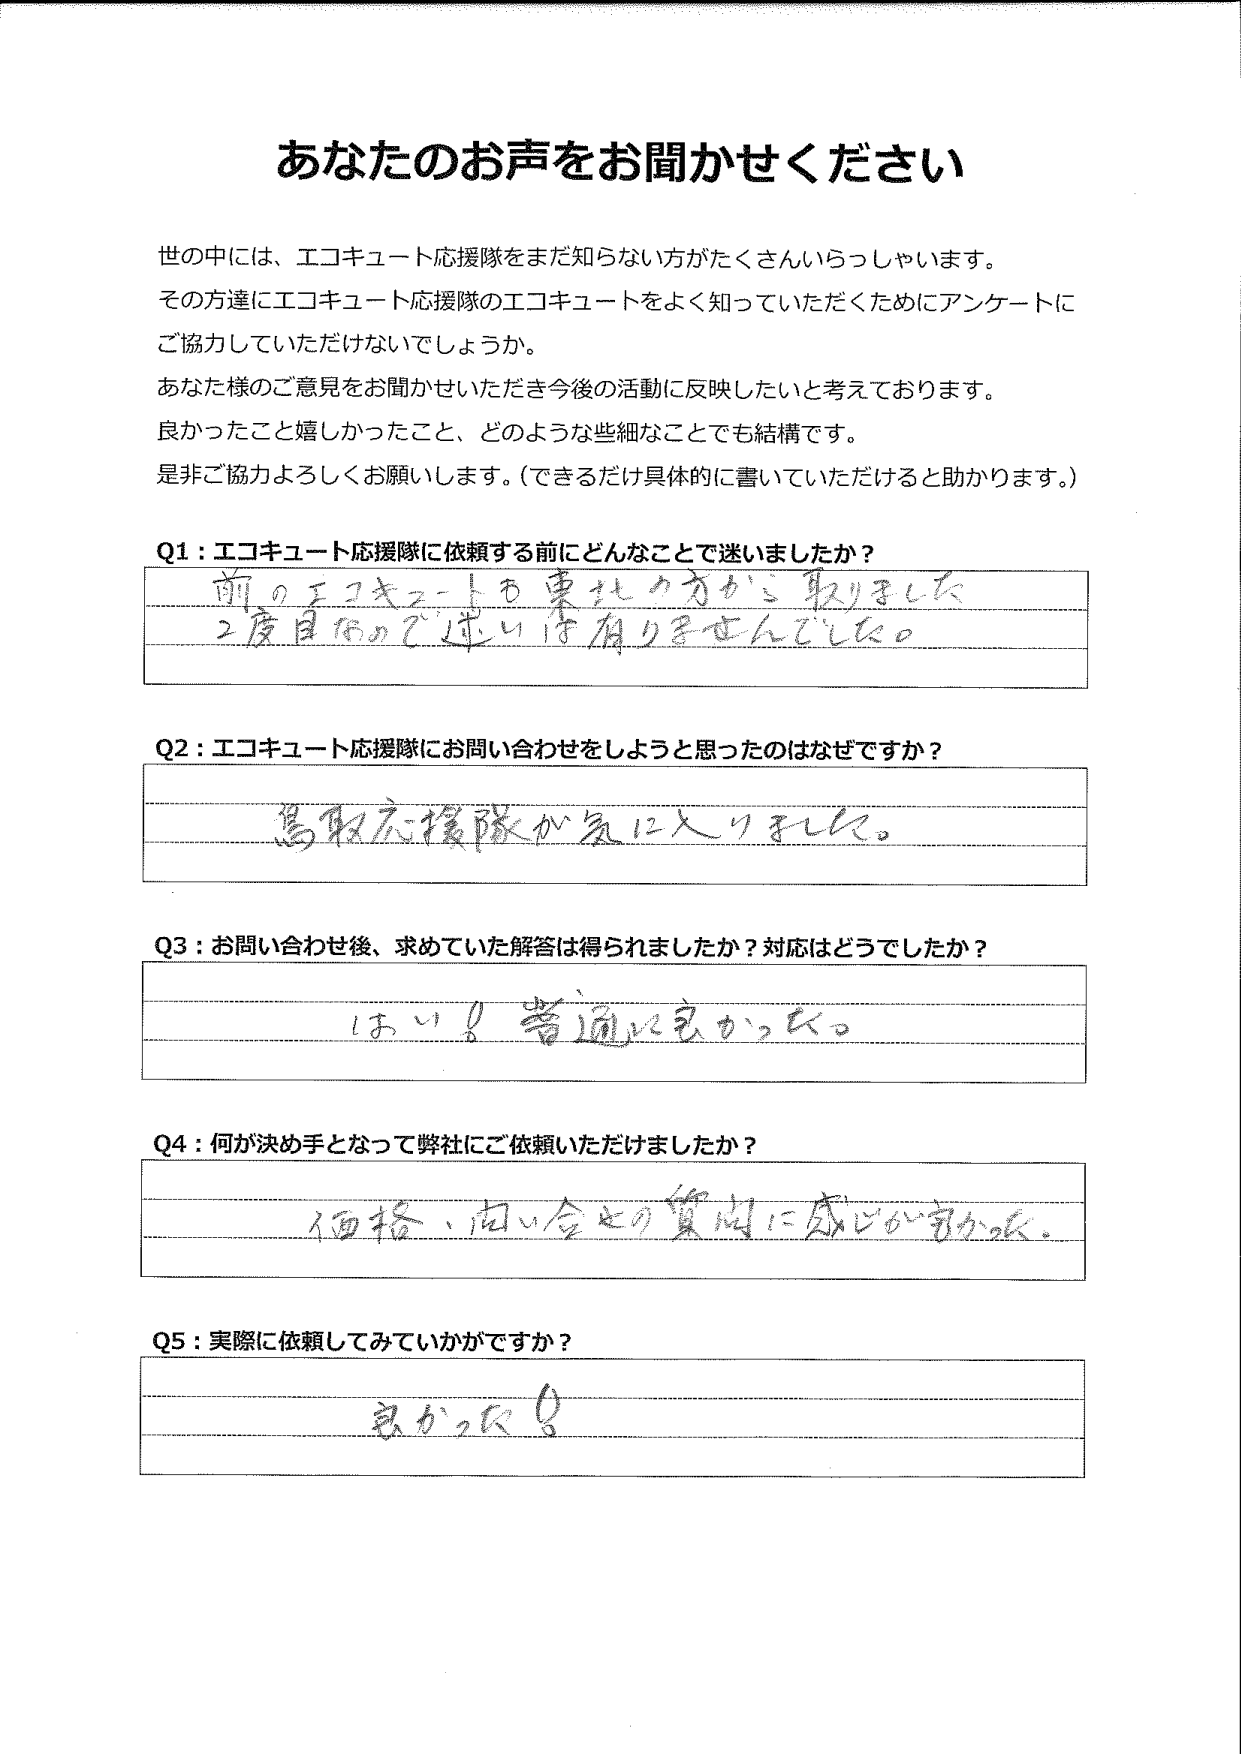 あなたのお声をお聞かせください
世の中には、エコキュート応援隊をまだ知らない方がたくさんいらっしゃいます。
その方達にエコキュート応援隊のエコキュートをよく知っていただくためにアンケートに
ご協力していただけないでしょうか。
あなた様のご意見をお聞かせいただき今後の活動に反映したいと考えております。
良かったこと嬉しかったこと、どのような些細なことでも結構です。
是非ご協力よろしくお願いします。（できるだけ具体的に書いていただけると助かります。）
Q1：エコキュート応援隊に依頼する前にどんなことで迷いましたか？
前のエコキュートも東北の方から取りました
2度目なので迷いは有りませんでした。
Q2：エコキュート応援隊にお問い合わせをしようと思ったのはなぜですか？
鳥取応援隊が気に入りました。
Q3：お問い合わせ後、求めていた解答は得られましたか？対応はどうでしたか？
はい！普通に良かった。
Q4：何が決め手となって弊社にご依頼いただけましたか？
価格、問い合せの質問に感じが良かった。
Q5：実際に依頼してみていかがですか？
良かった！